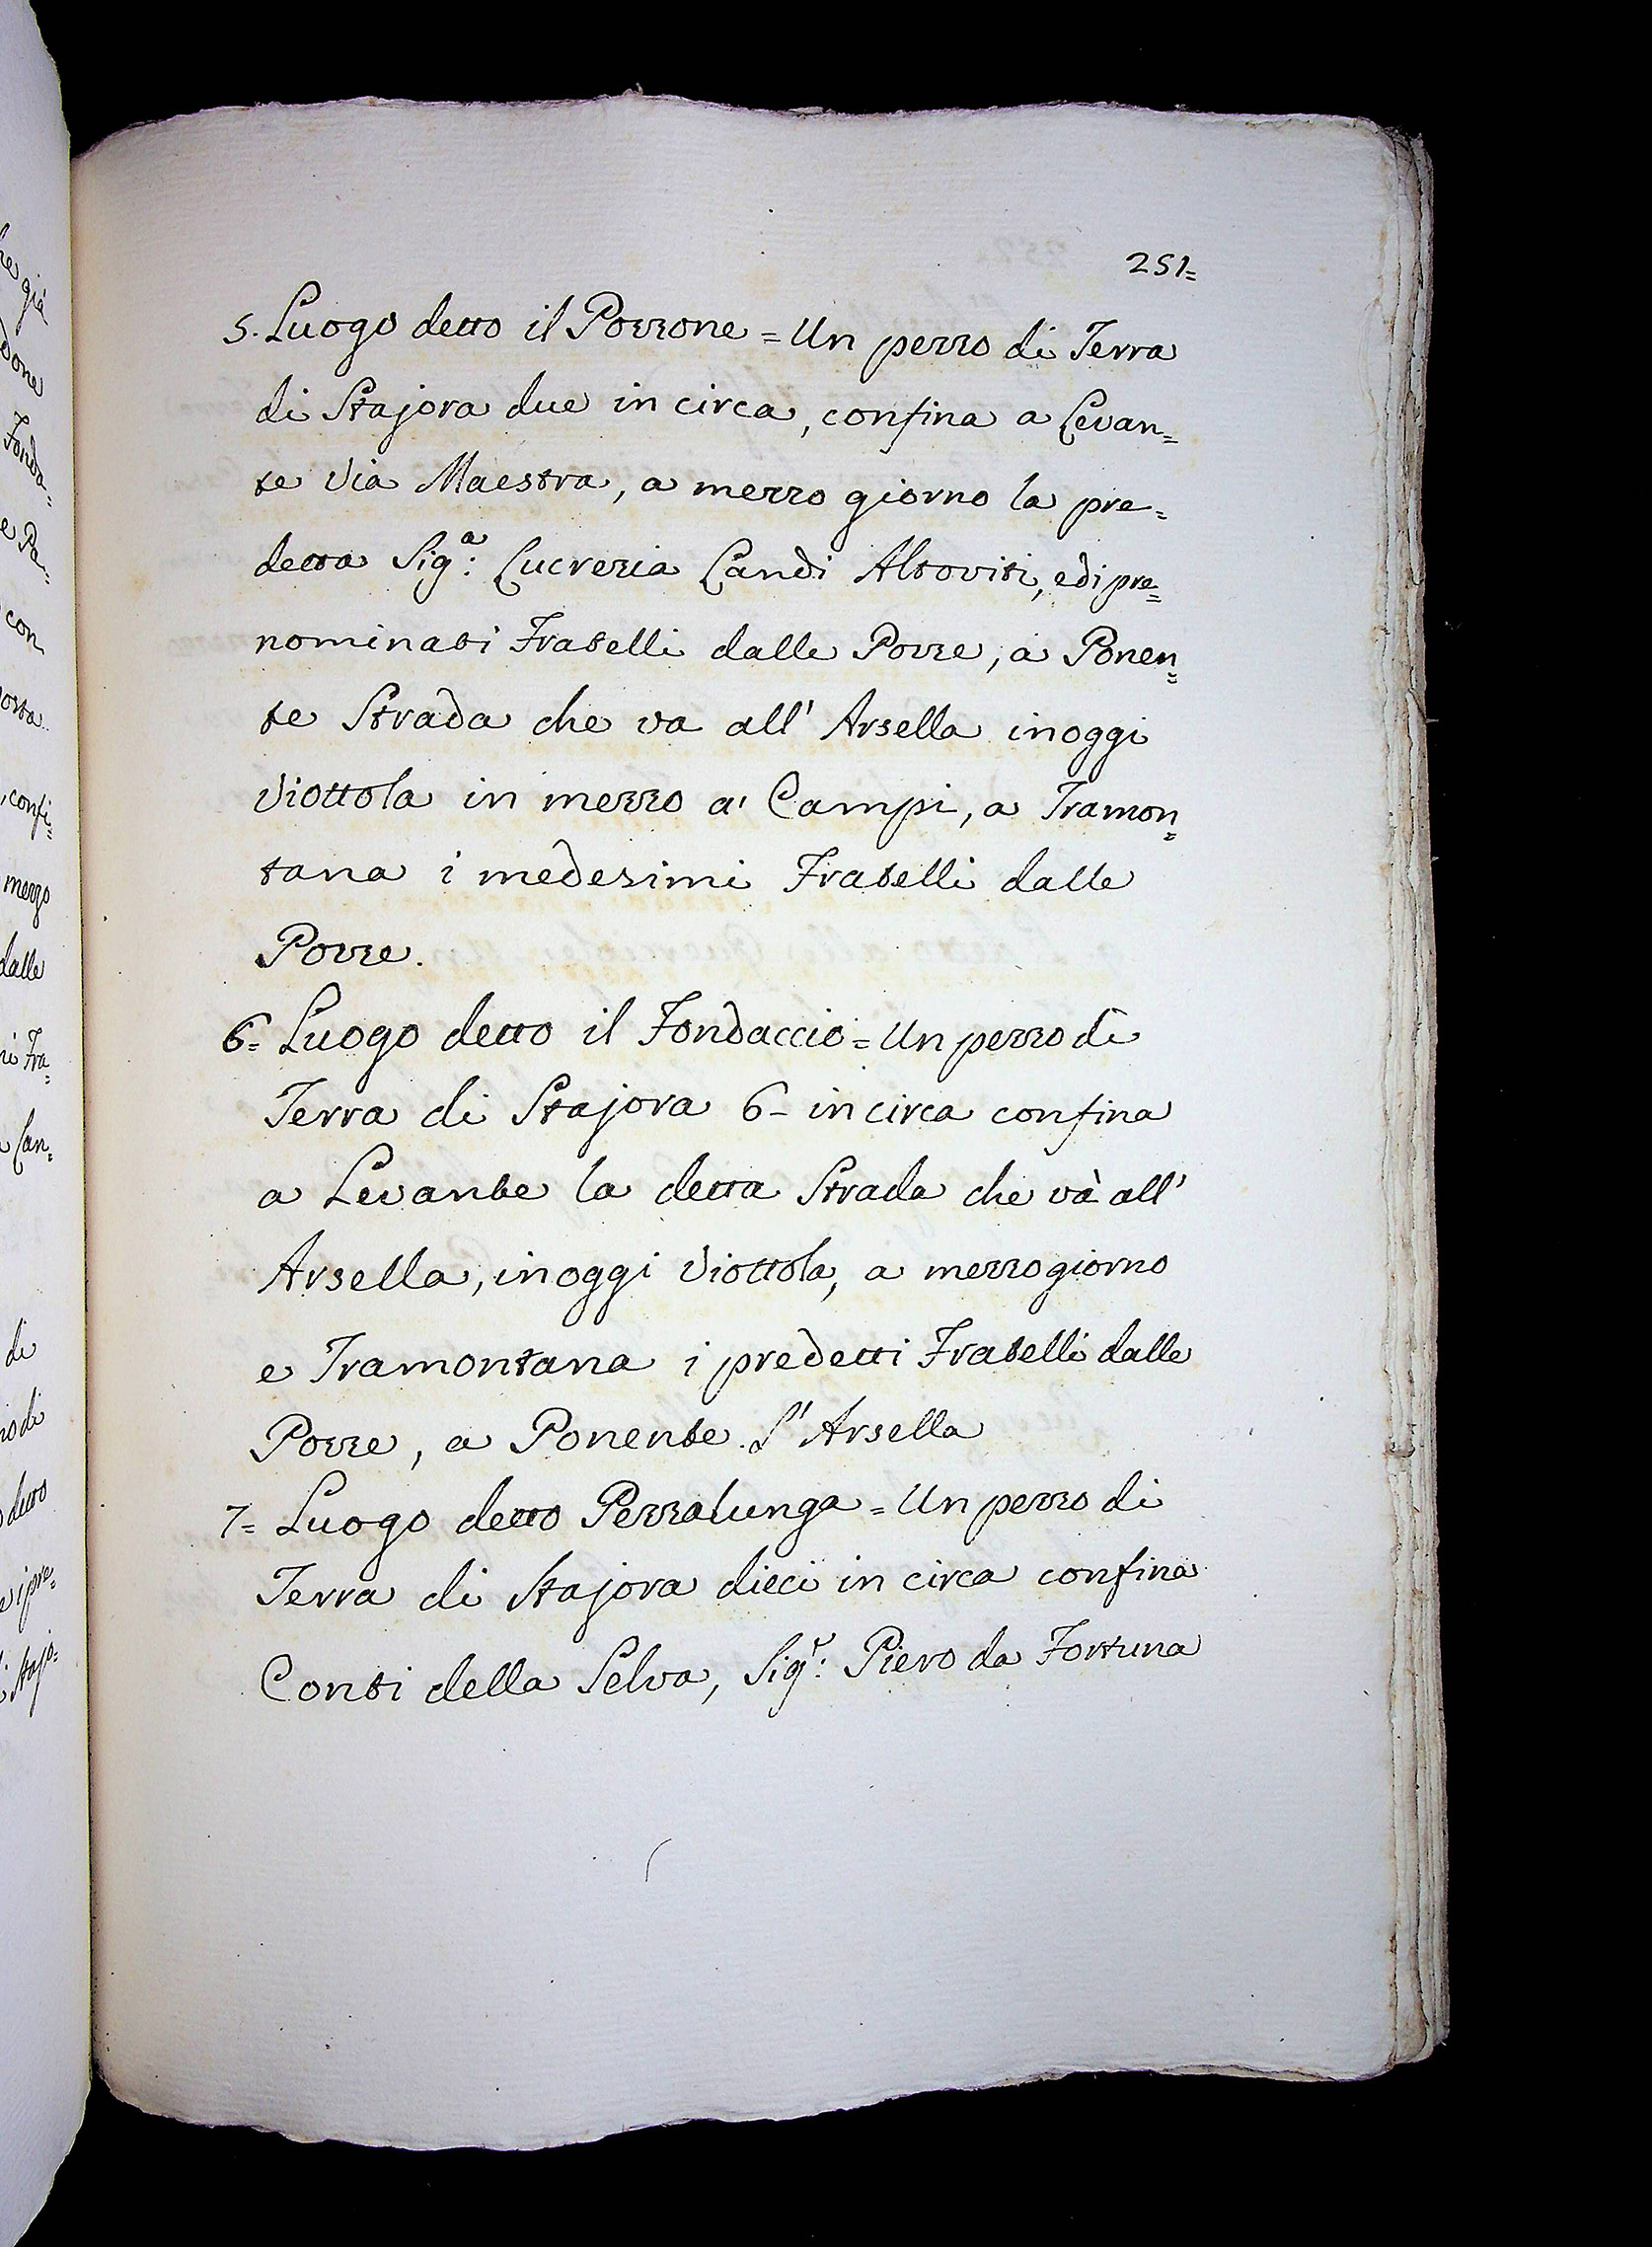 251=
5. Luogo detto il Pozzone = Un pezzo di Terra
di Stajora due in circa, confina a Levan=
te Via Maestra, a mezzo giorno la pre=
detta Sig.ª: Lucrezia Landi Altoviti, ed i pre=
nominati Fratelli dalle Pozze, a Ponen=
te Strada che va all' Arsella inoggi
Viottola in mezzo a' Campi, a Tramon=
tana i medesimi Fratelli dalle
Pozze.
6= Luogo detto il Fondaccio = Un pezzo di
Terra di Stajora 6- in circa confina
a Levante la detta Strada che và all'
Arsella, inoggi Viottola, a mezzo giorno
e Tramontana i predetti Fratelli dalle
Pozze, a Ponente. L' Arsella
7= Luogo detto Pezzalunga = Un pezzo di
Terra di Stajora dieci in circa confina
Conti della Selva, Sigʳ: Piero da Fortuna